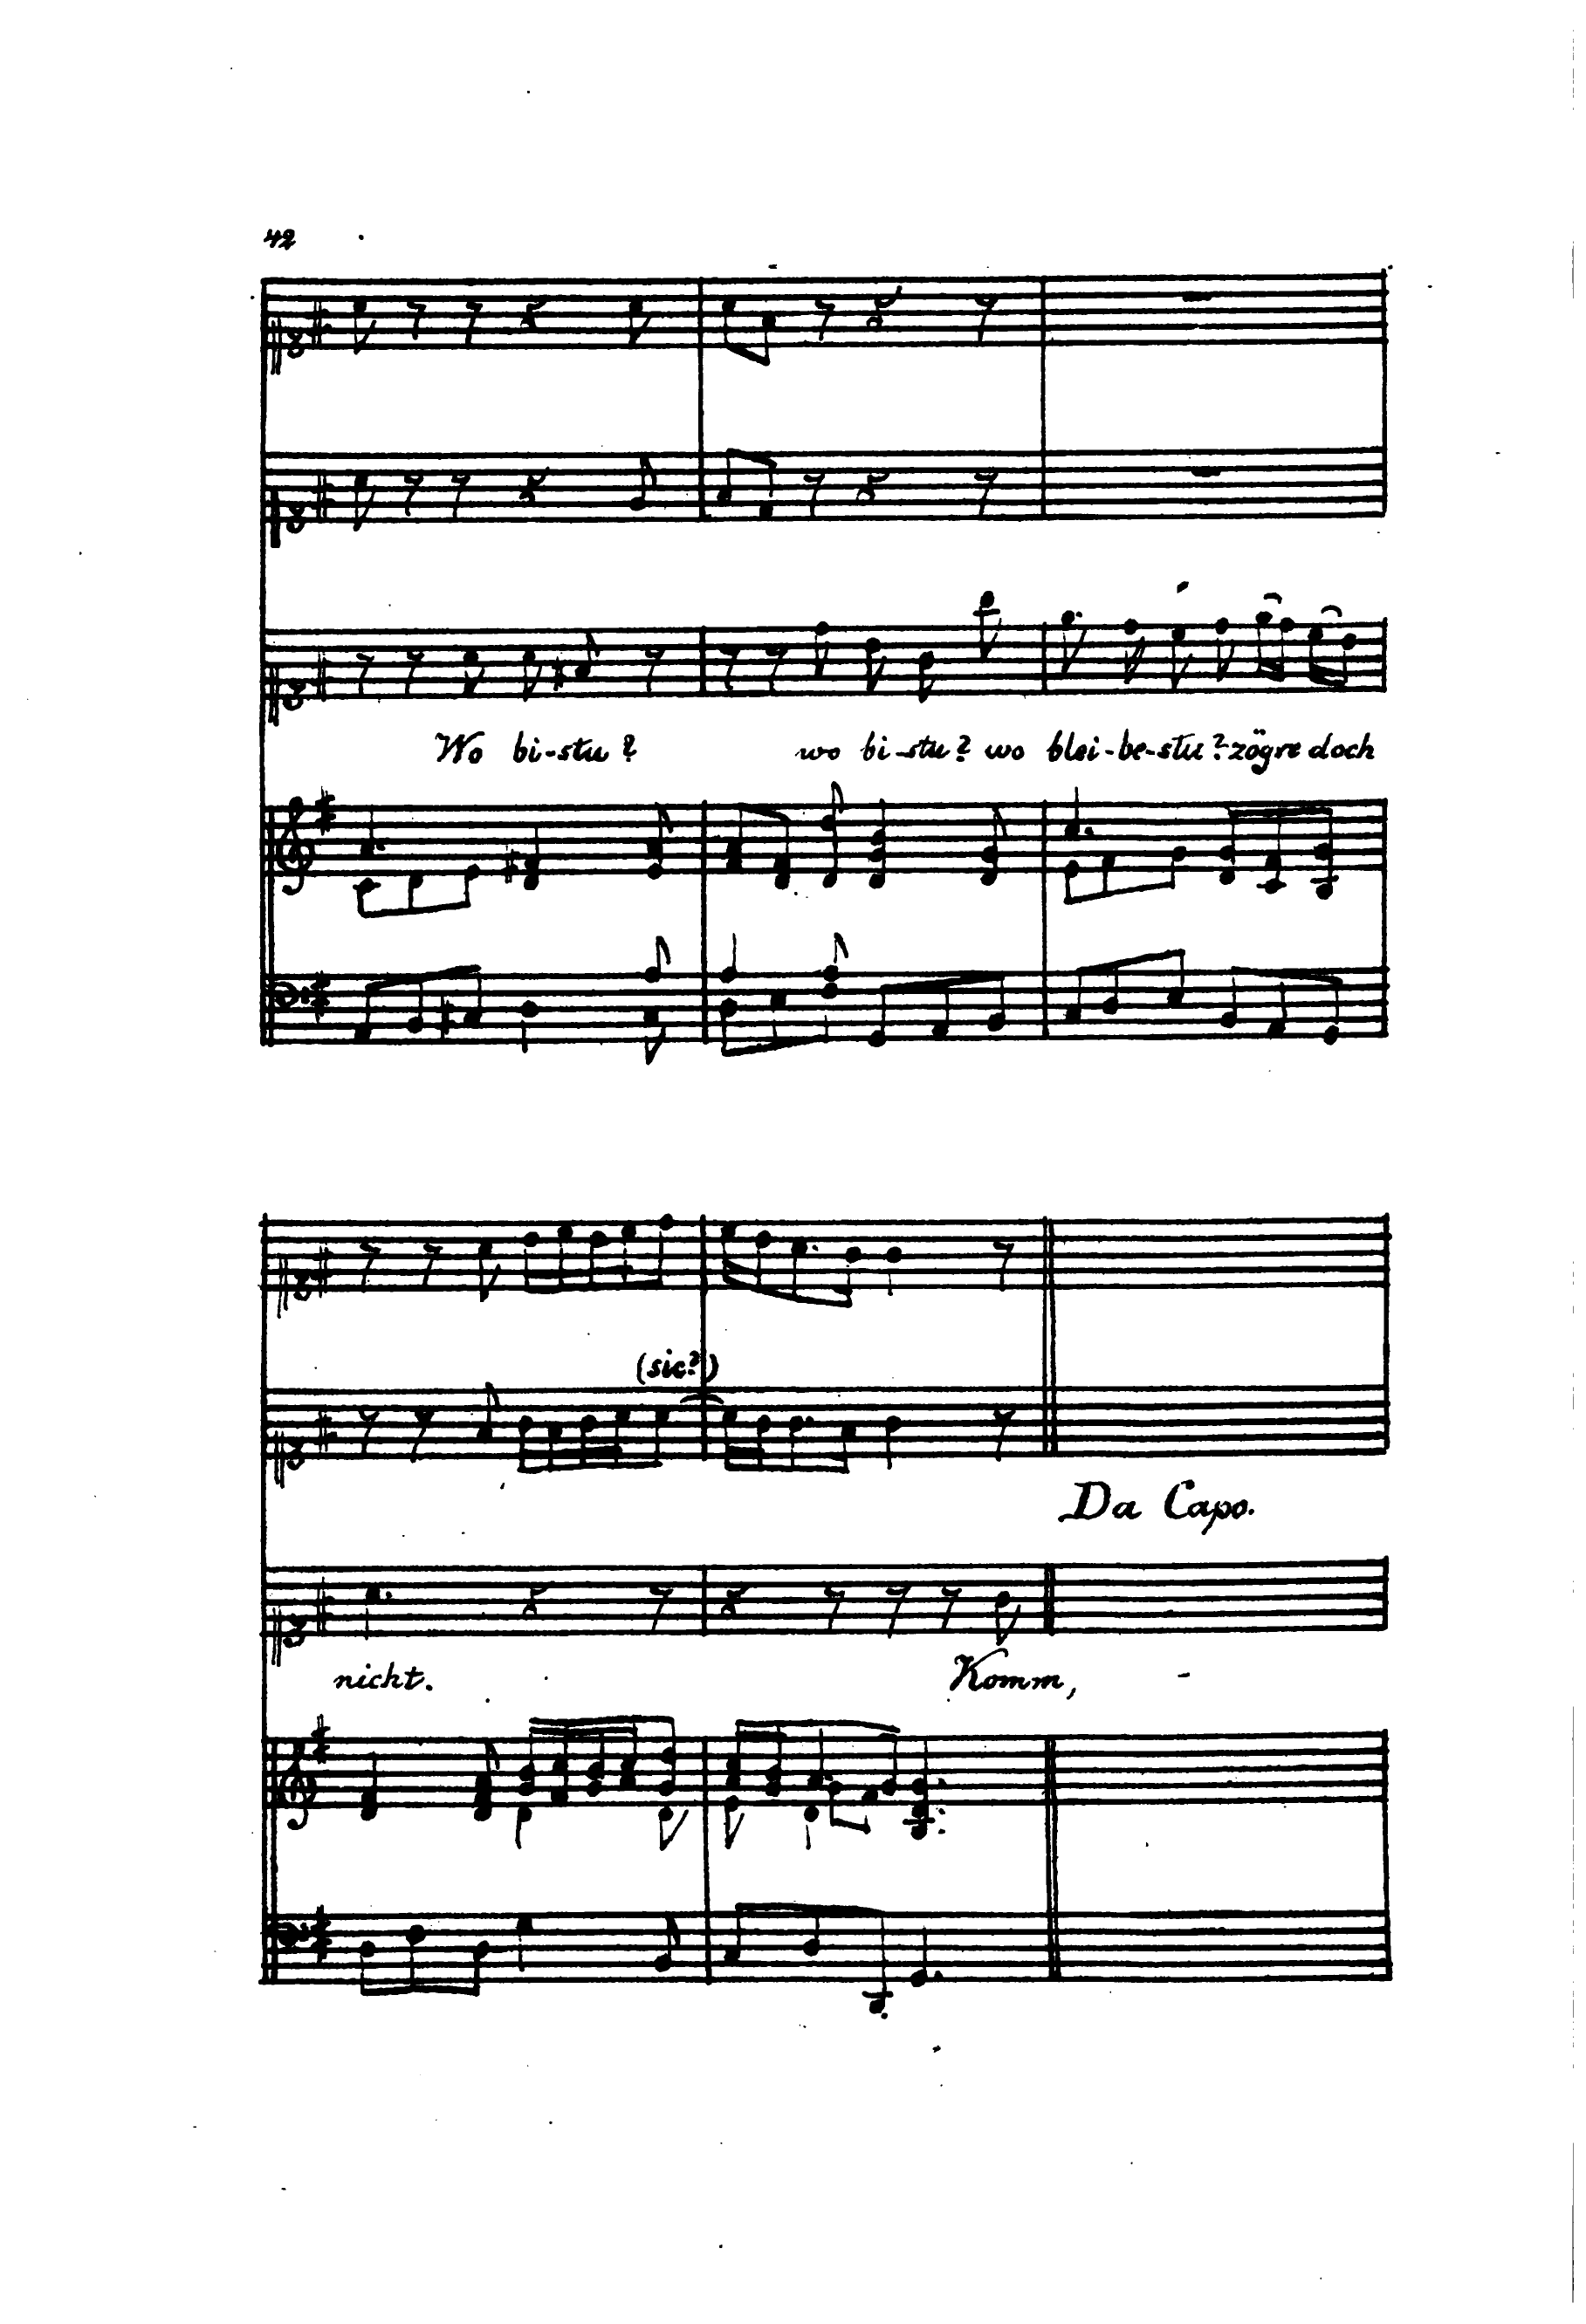 42
Wo bi-stu? wo bi-stu? wo blei-be-stu? zögre doch
(sic?)
Da Capo.
nicht. Komm, -